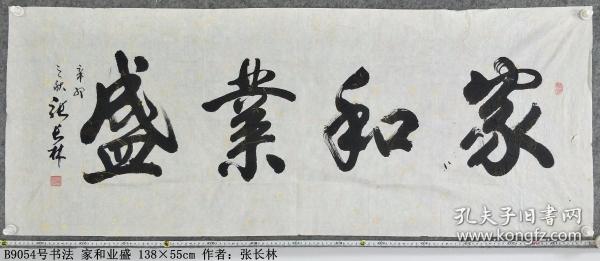 家和業盛
辛卯
之秋 張長林
孔夫子旧书网
B9054号书法 家和业盛 138×55cm 作者：张长林